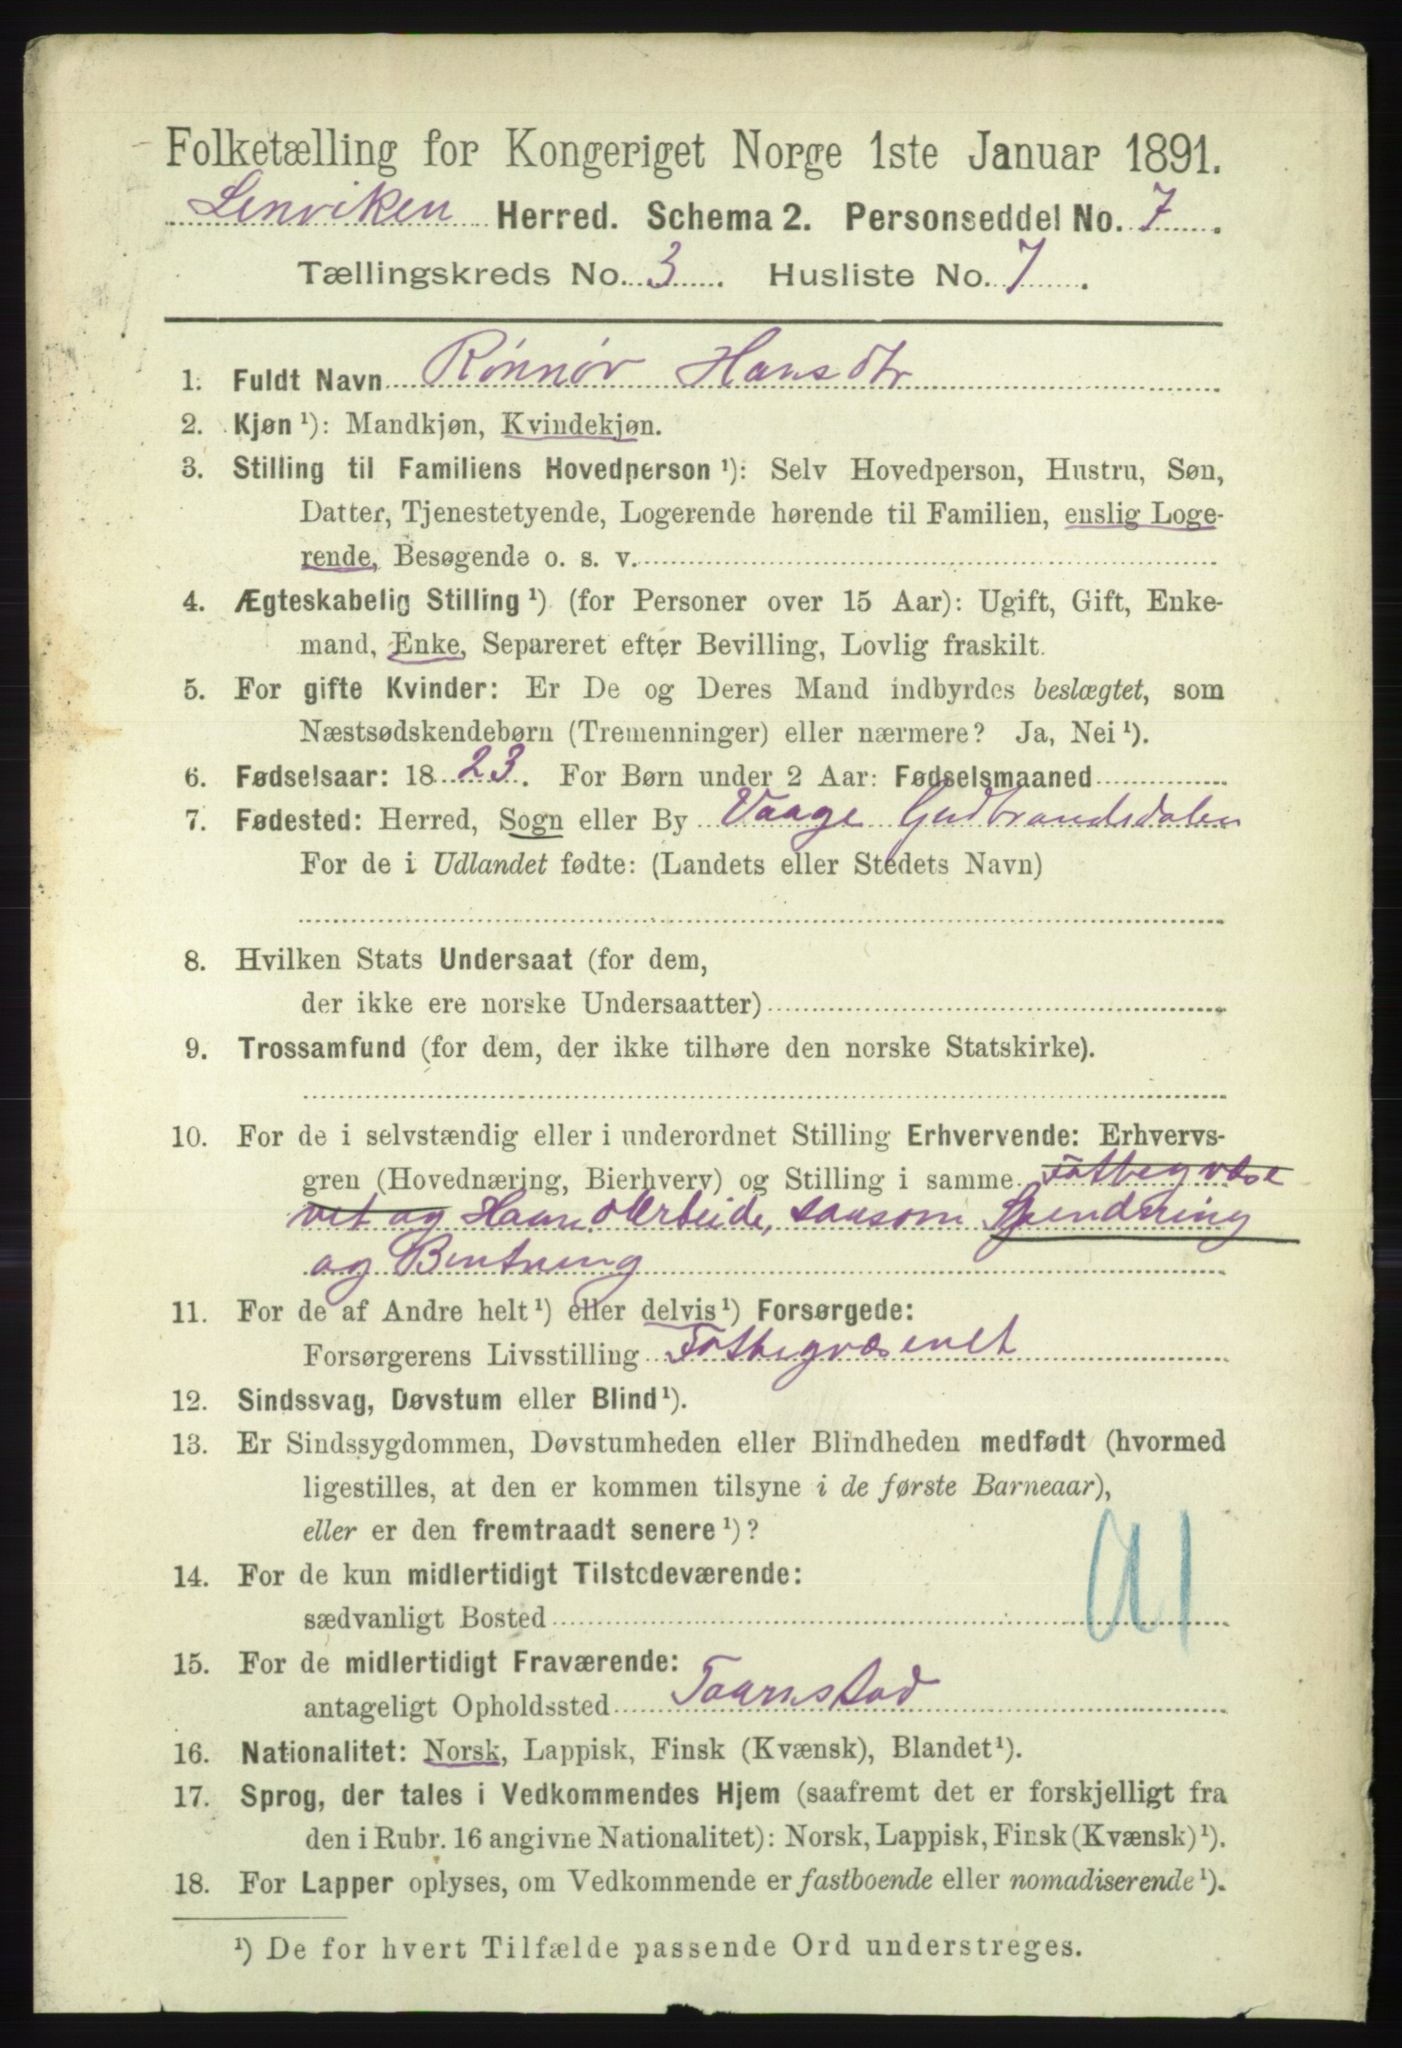 Folketælling for Kongeriget Norge 1ste Januar 1891.
Lenviken Herred. Schema 2. Personseddel No. 7.
Tællingskreds No. 3. Husliste No. 7.
1. Fuldt Navn Rønnøv Hansdtr
2. Kjøn ¹): Mandkjøn, Kvindekjøn.
3. Stilling til Familiens Hovedperson ¹): Selv Hovedperson, Hustru, Søn,
Datter, Tjenestetyende, Logerende hørende til Familien, enslig Loge-
rende, Besøgende o. s. v.
4. Ægteskabelig Stilling ¹) (for Personer over 15 Aar): Ugift, Gift, Enke-
mand, Enke, Separeret efter Bevilling, Lovlig fraskilt.
5. For gifte Kvinder: Er De og Deres Mand indbyrdes beslægtet, som
Næstsødskendebørn (Tremenninger) eller nærmere? Ja, Nei ¹).
6. Fødselsaar: 1823. For Børn under 2 Aar: Fødselsmaaned
7. Fødested: Herred, Sogn eller By Vaage Gudbrandsdalen
For de i Udlandet fødte: (Landets eller Stedets Navn)
8. Hvilken Stats Undersaat (for dem,
der ikke ere norske Undersaatter)
9. Trossamfund (for dem, der ikke tilhøre den norske Statskirke).
10. For de i selvstændig eller i underordnet Stilling Erhvervende: Erhvervs-
gren (Hovednæring, Bierhverv) og Stilling i samme Fattegvæse
net og Haandarbeide, saasom Spindning
og Bintning
11. For de af Andre helt ¹) eller delvis ¹) Forsørgede:
Forsørgerens Livsstilling Fattegvæsenet
12. Sindssvag, Døvstum eller Blind ¹).
13. Er Sindssygdommen, Døvstumheden eller Blindheden medfødt (hvormed
ligestilles, at den er kommen tilsyne i de første Barneaar),
eller er den fremtraadt senere ¹)?
14. For de kun midlertidigt Tilstedeværende:
sædvanligt Bosted
15. For de midlertidigt Fraværende:
antageligt Opholdssted Taarnstad
16. Nationalitet: Norsk, Lappisk, Finsk (Kvænsk), Blandet ¹).
17. Sprog, der tales i Vedkommendes Hjem (saafremt det er forskjelligt fra
den i Rubr. 16 angivne Nationalitet): Norsk, Lappisk, Finsk (Kvænsk) ¹).
18. For Lapper oplyses, om Vedkommende er fastboende eller nomadiserende ¹).
¹) De for hvert Tilfælde passende Ord understreges.